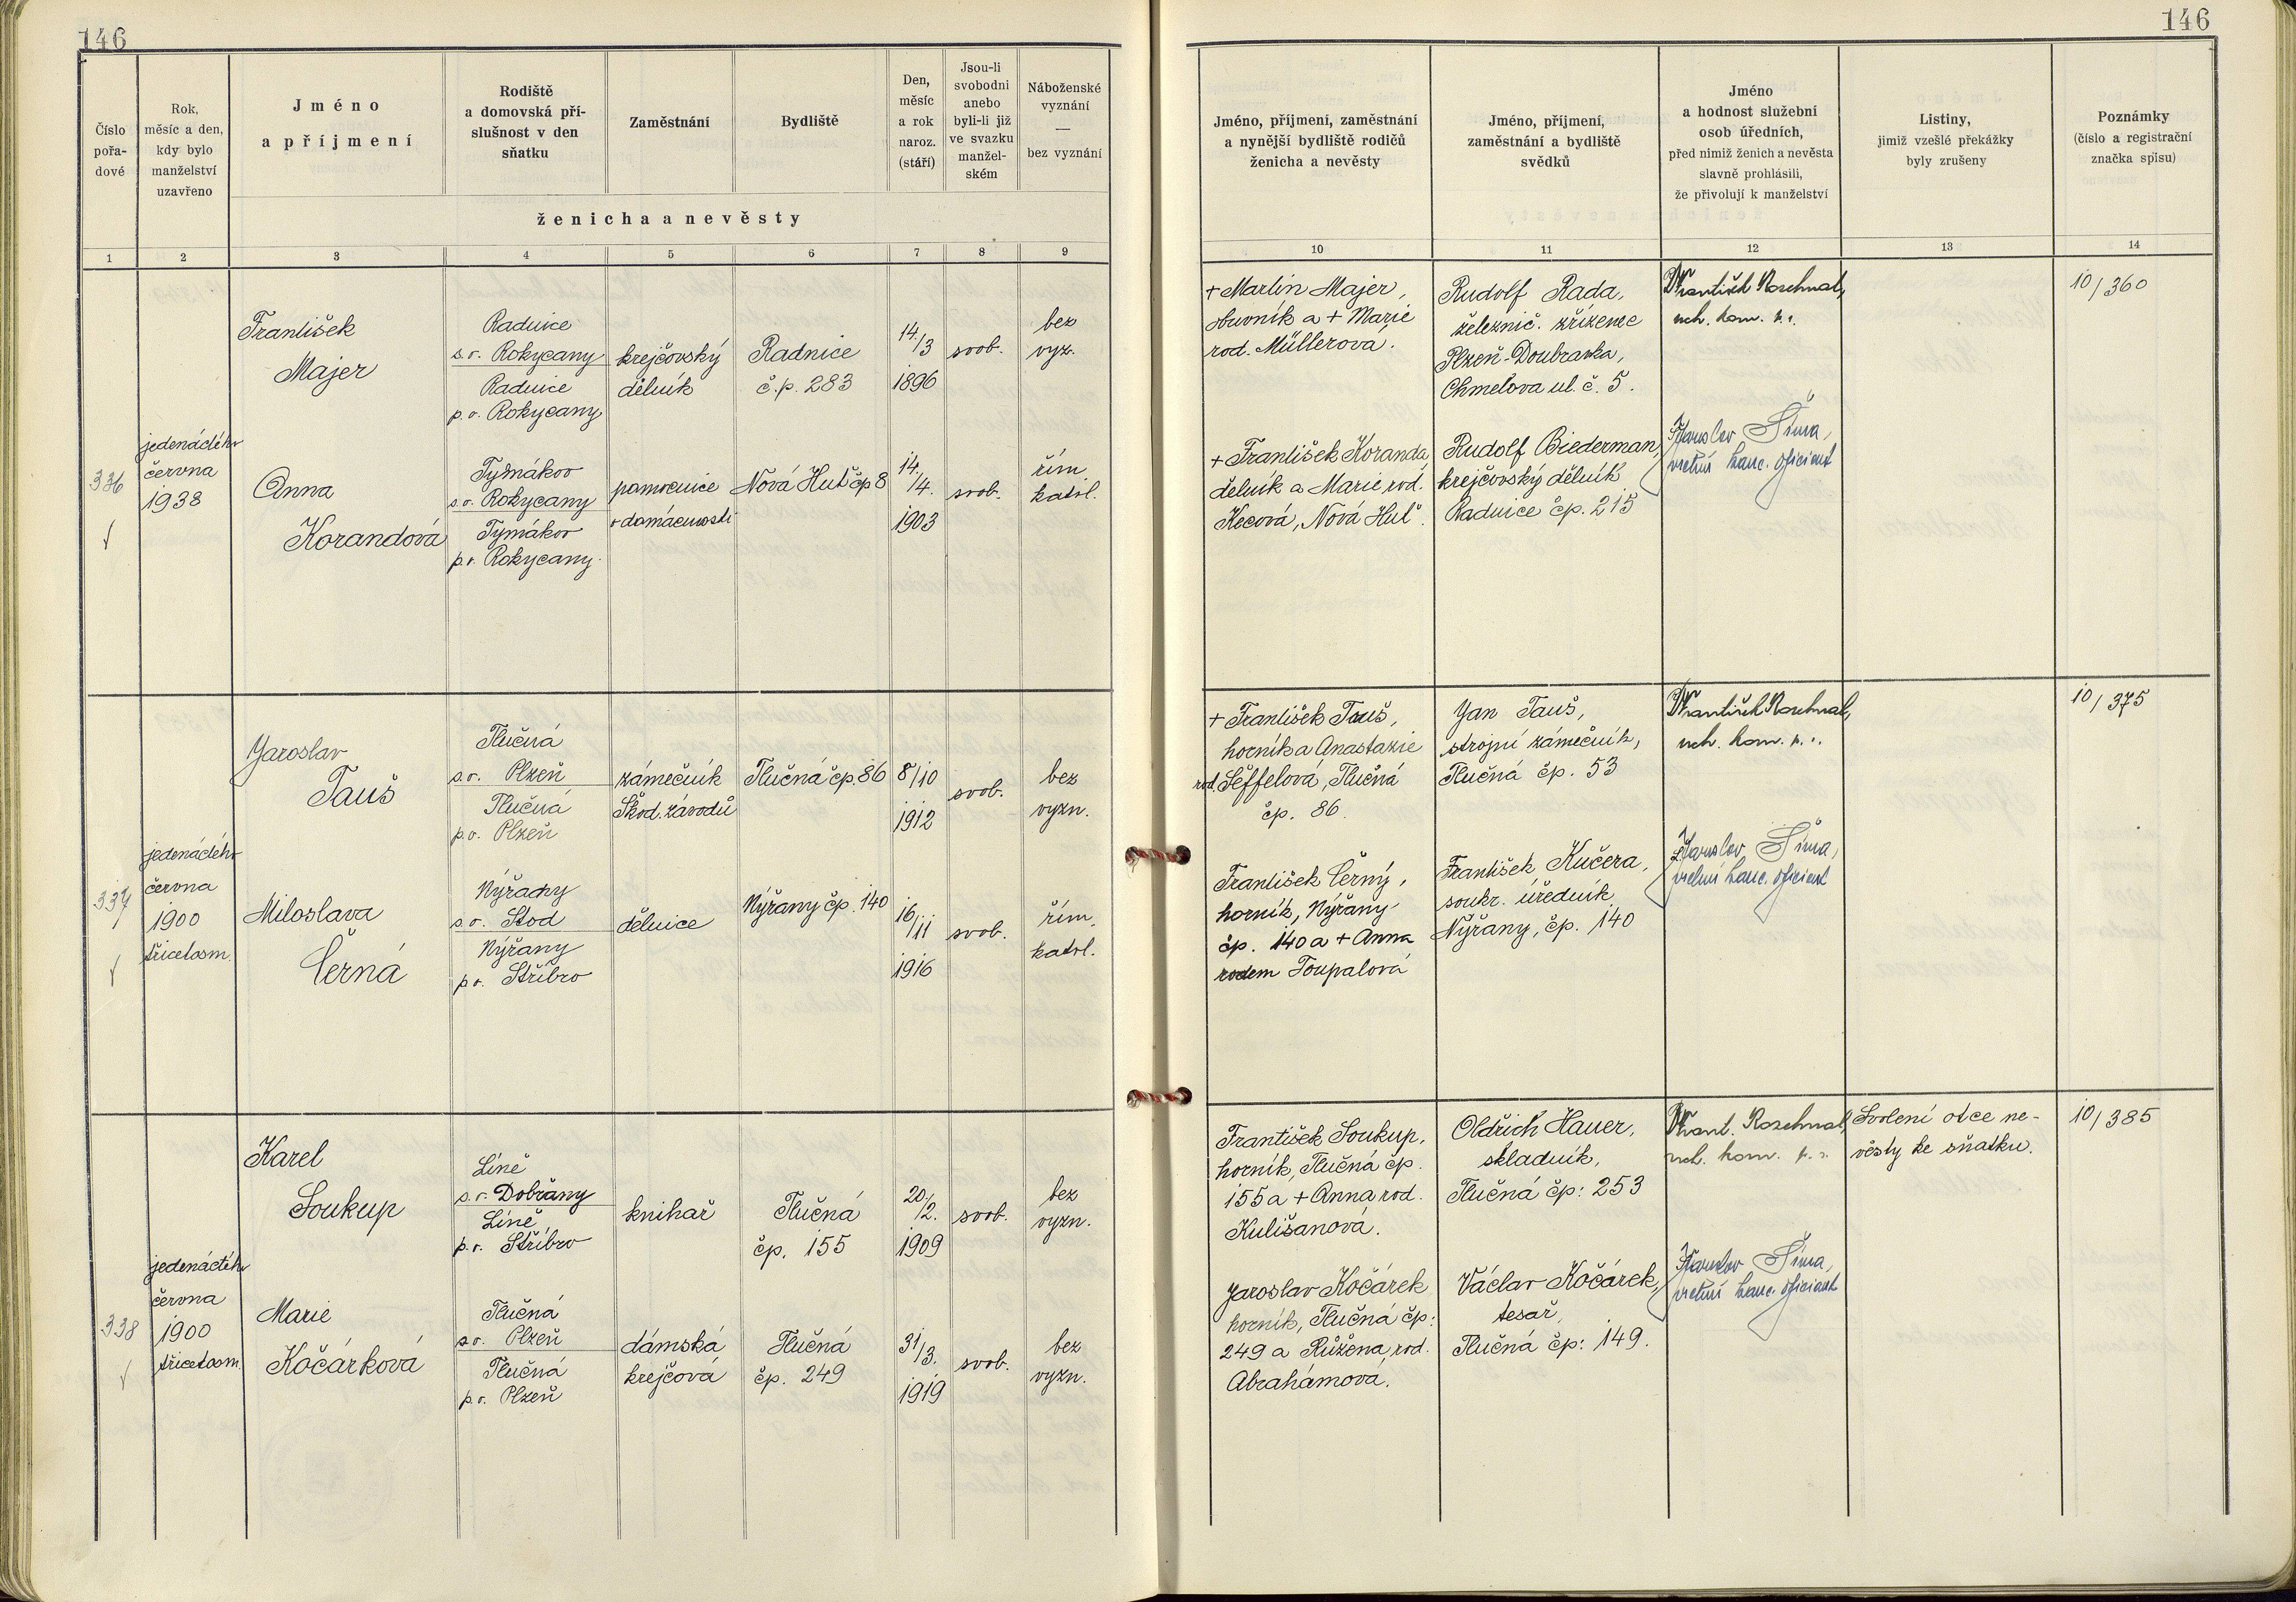 146
146
Číslo
pořa-
dové
Rok,
měsíc a den,
kdy bylo
manželství
uzavřeno
Jméno
a příjmení
Rodiště
a domovská pří-
slušnost v den
sňatku
Zaměstnání
Bydliště
Den,
měsíc
a rok
naroz.
(stáří)
Jsou-li
svobodni
anebo
byli-li již
ve svazku
manžel-
ském
Náboženské
vyznání
—
bez vyznání
ženicha a nevěsty
Jméno, příjmení, zaměstnání
a nynější bydliště rodičů
ženicha a nevěsty
Jméno, příjmení,
zaměstnání a bydliště
svědků
Jméno
a hodnost služební
osob úředních,
před nimiž ženich a nevěsta
slavně prohlásili,
že přivolují k manželství
Listiny,
jimiž vzešlé překážky
byly zrušeny
Poznámky
(číslo a registrační
značka spisu)
1 2 3 4 5 6 7 8 9 10 11 12 13 14
336
jedenáctého
června
1938
František
Majer
Radnice
s.o. Rokycany
Radnice
p.o. Rokycany
krejčovský
dělník
Radnice
č.p. 283
14./3
1896
svob.
bez
vyz.
Anna
Korandová
Tymákov
s.o. Rokycany
Tymákov
p.o. Rokycany
pomocnice
v domácnosti
Nová Huť čp 8
14./4.
1903
svob.
řím.
katol.
+ Martin Majer,
obuvník a + Marie
rod. Müllerová.
+ František Koranda
dělník a Marie rod.
Kecová, Nová Huť.
Rudolf Rada,
železnič. zřízenec
Plzeň-Doubravka,
Chmelova ul. č. 5.
Rudolf Biederman,
krejčovský dělník
Radnice čp. 215
František
Jaroslav Šíma,
vrchní kanc. oficiant
10/360
337
jedenáctého
června
1900
třicetosm.
Jaroslav
Tauš
Tlučná
s.o. Plzeň
Tlučná
p.o. Plzeň
zámečník
Škod. závodů
Tlučná čp. 86
8/10
1912
svob.
bez
vyzn.
Miloslava
Černá
Nýřany
s.o. Stod
Nýřany
p.o. Stříbro
dělnice
Nýřany čp. 140
16/11
1916
svob.
řím.
katol.
+ František Tauš,
horník a Anastazie
rod. Šeffelová, Tlučná
čp. 86.
František Černý,
horník, Nýřany
čp. 140 a + Anna
rodem Toupalová
Jan Tauš,
strojní zámečník,
Tlučná čp. 53
František Kučera,
soukr. úředník
Nýřany, čp. 140
František
Jaroslav Šíma,
vrchní kanc. oficiant
10/375
338
jedenáctého
června
1900
třicetosm.
Karel
Soukup
Líně
s.o. Dobřany
Líně
p.o. Stříbro
knihař
Tlučná
čp. 155
20./2.
1909
svob.
bez
vyzn.
Marie
Kočárková
Tlučná
s.o. Plzeň
Tlučná
p.o. Plzeň
dámská
krejčová
Tlučná
čp. 249
31/3.
1919
svob.
bez
vyzn.
František Soukup,
horník, Tlučná čp.
155 a + Anna rod.
Kulišanová.
Jaroslav Kočárek
horník, Tlučná čp:
249 a Růžena, rod.
Abrahámová.
Oldřich Hauer,
skladník,
Tlučná čp: 253
Václav Kočárek,
tesař,
Tlučná čp: 149.
Frant.
Jaroslav Šíma,
vrchní kanc. oficiant
Svolení otce ne-
věsty ke sňatku.
10/385